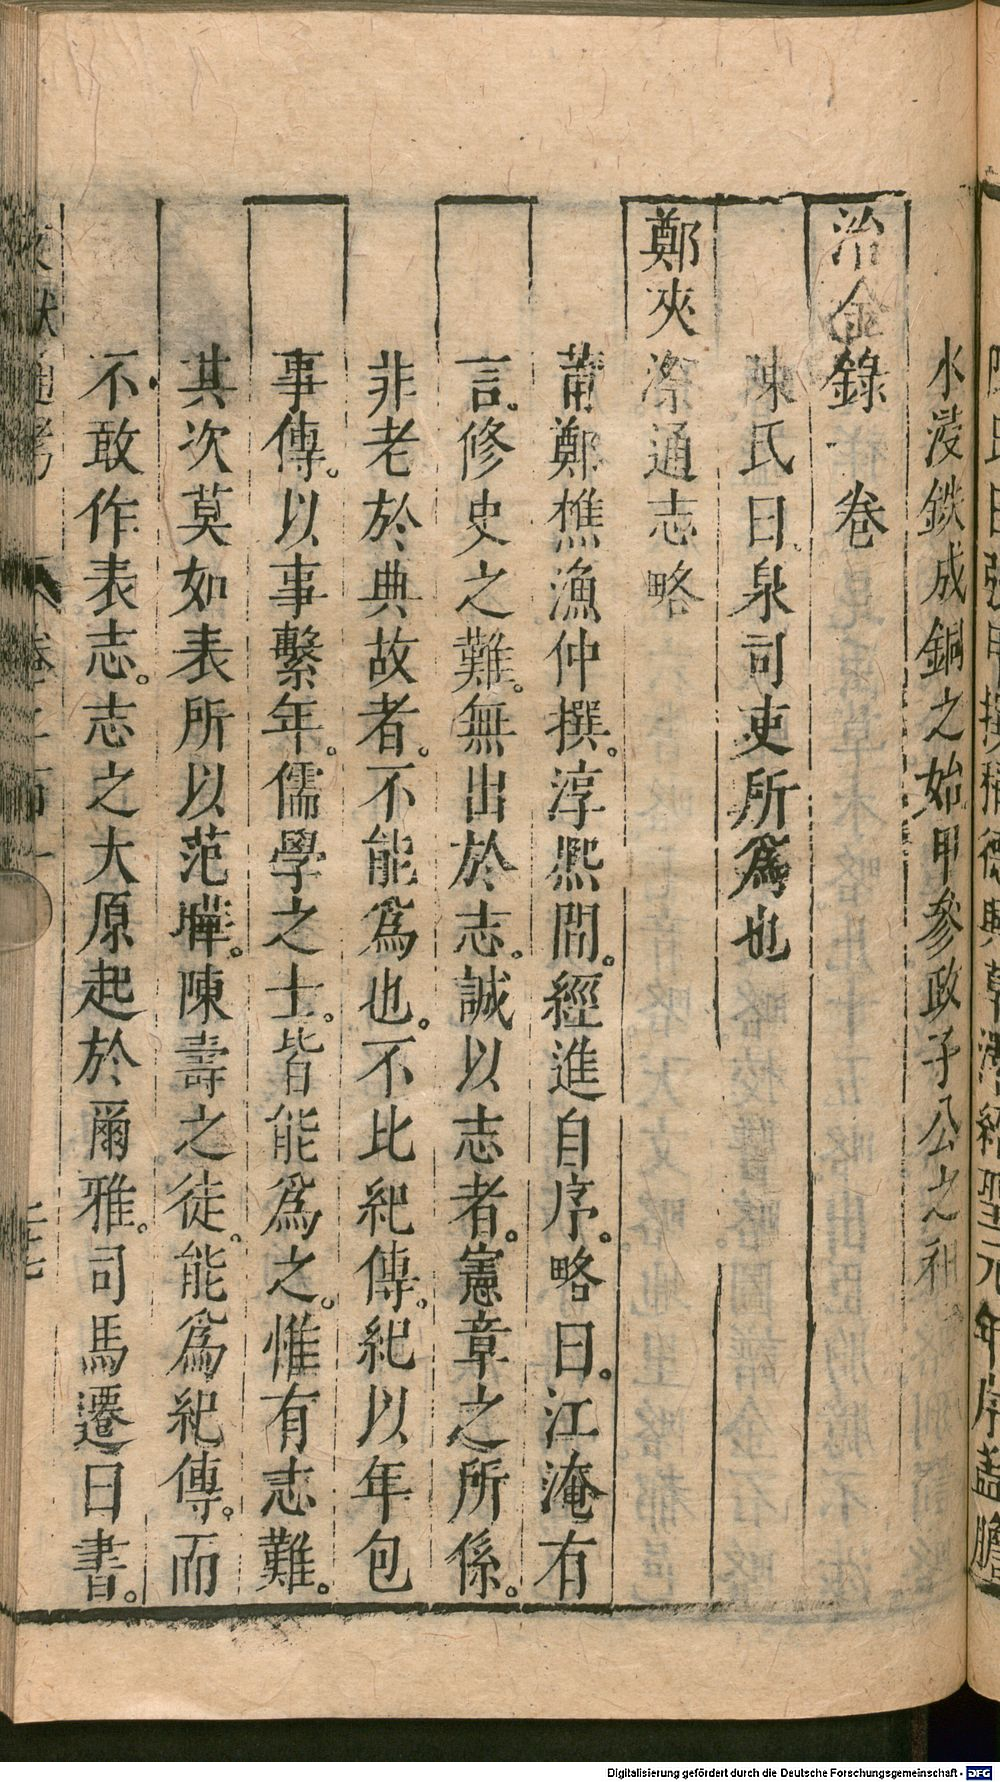 水浸鉄成銅之始甲參政子公之祖
冶金錄一卷
陳氏曰泉司吏所爲也
鄭夾漈通志略
莆鄭樵漁仲撰。淳熙間。經進自序。略曰。江淹有
言。修史之難。無出於志。誠以志者。憲章之所係。
非老於典故者。不能爲也。不比紀傳。紀以年包
事傳。以事繫年。儒學之士。皆能爲之。惟有志難。
其次莫如表所以范曄。陳壽之徒。能爲紀傳。而
不敢作表志。志之大原起於爾雅。司馬遷曰書。
Digitalisierung gefördert durch die Deutsche Forschungsgemeinschaft - DFG